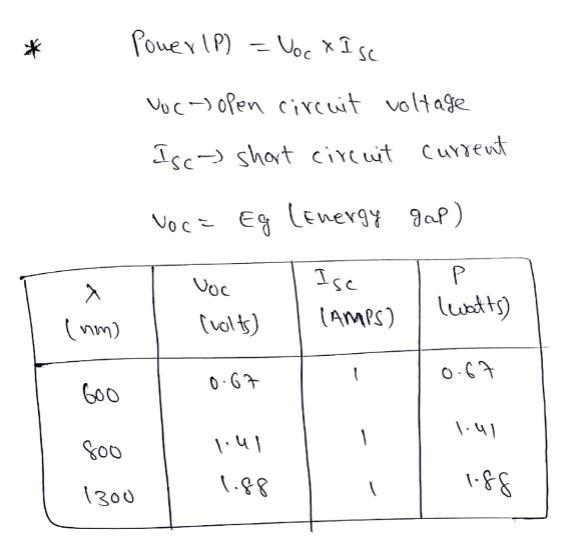 * Power(P) = Voc x Isc
Voc → open circuit voltage
Isc → short circuit current
Voc = Eg (Energy gap)
λ (nm) Voc (volts) Isc (AMPS) P (watts)
600 0.67 1 0.67
800 1.41 1 1.41
1300 1.88 1 1.88